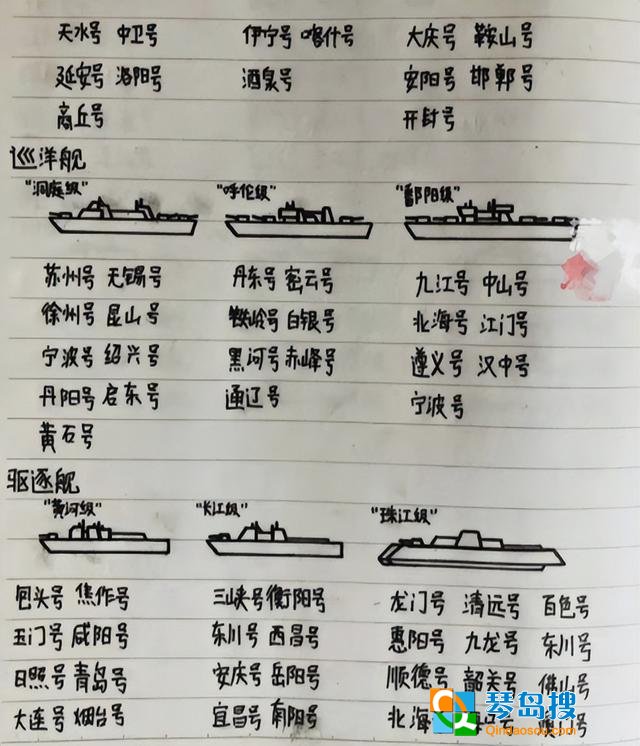 天水号 中卫号 伊宁号 喀什号 大庆号 鞍山号
延安号 洛阳号 酒泉号 安阳号 邯郸号
高丘号 开封号
巡洋舰
"洞庭级" "呼伦级" "鄱阳级"
苏州号 无锡号 丹东号 密云号 九江号 中山号
徐州号 昆山号 铁岭号 白银号 北海号 江门号
宁波号 绍兴号 黑河号 赤峰号 遵义号 汉中号
丹阳号 启东号 通辽号 宁波号
黄石号
驱逐舰
"黄河级" "长江级" "珠江级"
包头号 焦作号 三峡号 衡阳号 龙门号 清远号 百色号
玉门号 咸阳号 东川号 西昌号 惠阳号 九龙号 东川号
日照号 青岛号 安庆号 岳阳号 顺德号 韶关号 佛山号
大连号 烟台号 宜昌号 南阳号 北海
琴岛搜
Qindaosou.com